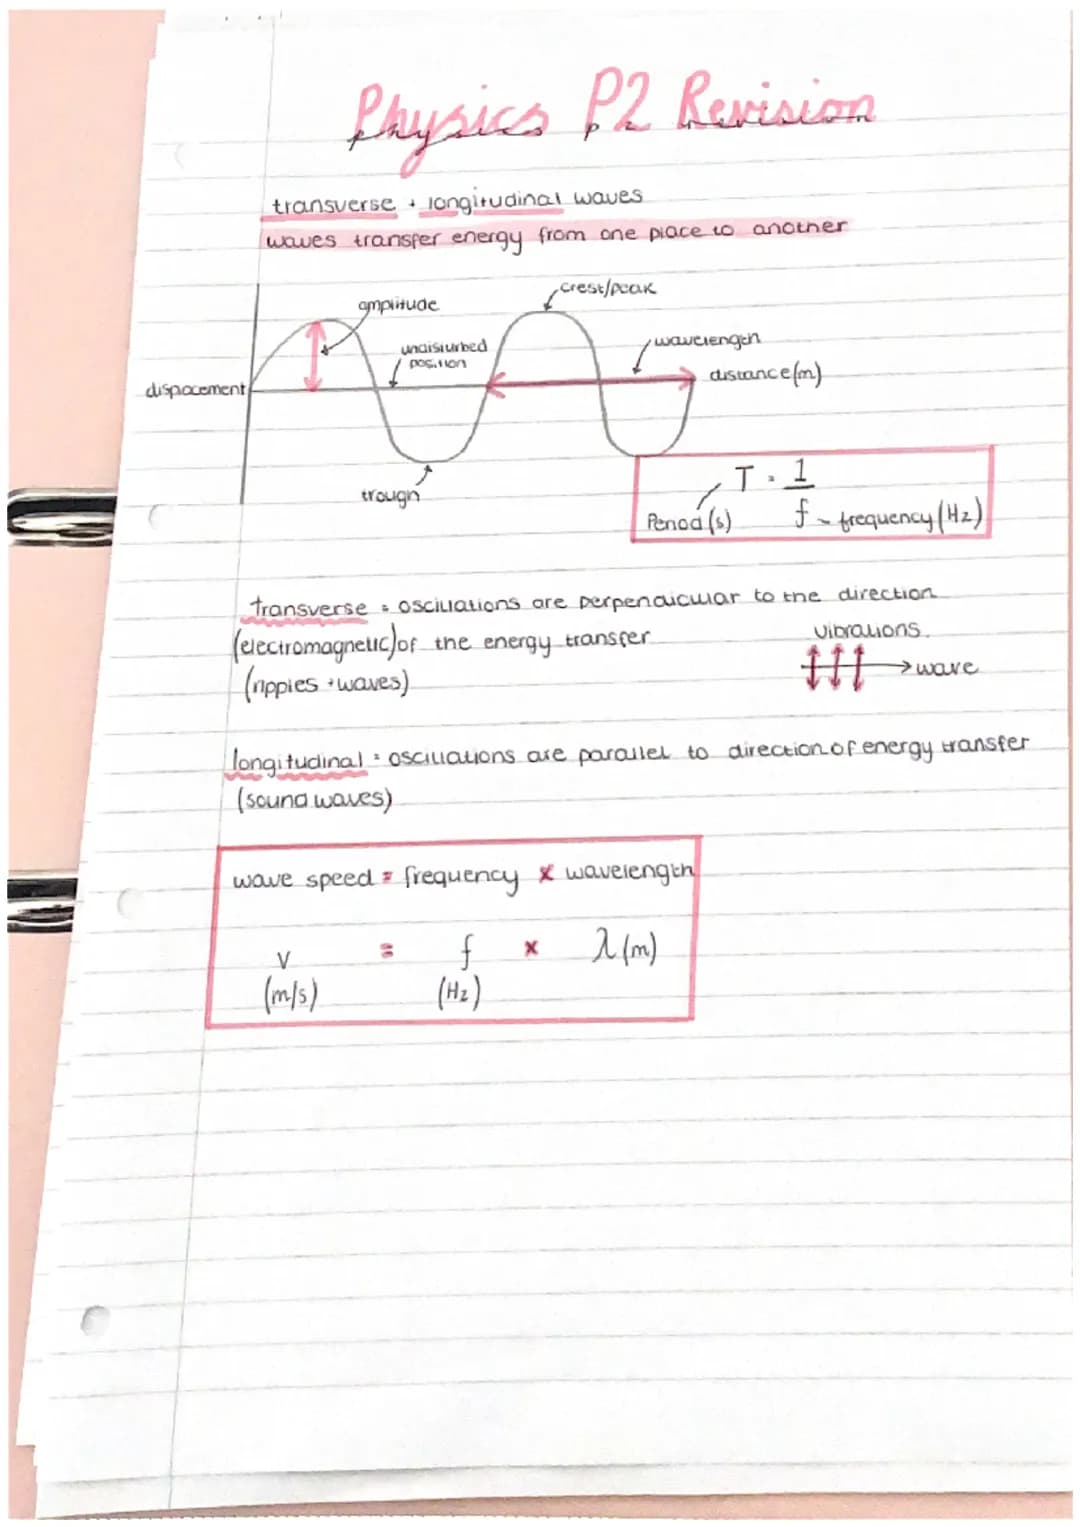 Physics P2 Revision
transverse + longitudinal waves
waves transfer energy from one place to another
crest/peak
amplitude
undisturbed
position
wavelength
dispacement
distance(m)
trough
T = 1
Period (s)
f - frequency (Hz)
transverse = oscillations are perpendicular to the direction
(electromagnetic) of the energy transfer
vibrations
(ripples + waves)
wave
longitudinal = oscillations are parallel to direction of energy transfer
(sound waves)
wave speed = frequency x wavelength
v = f x λ (m)
(m/s) (Hz)